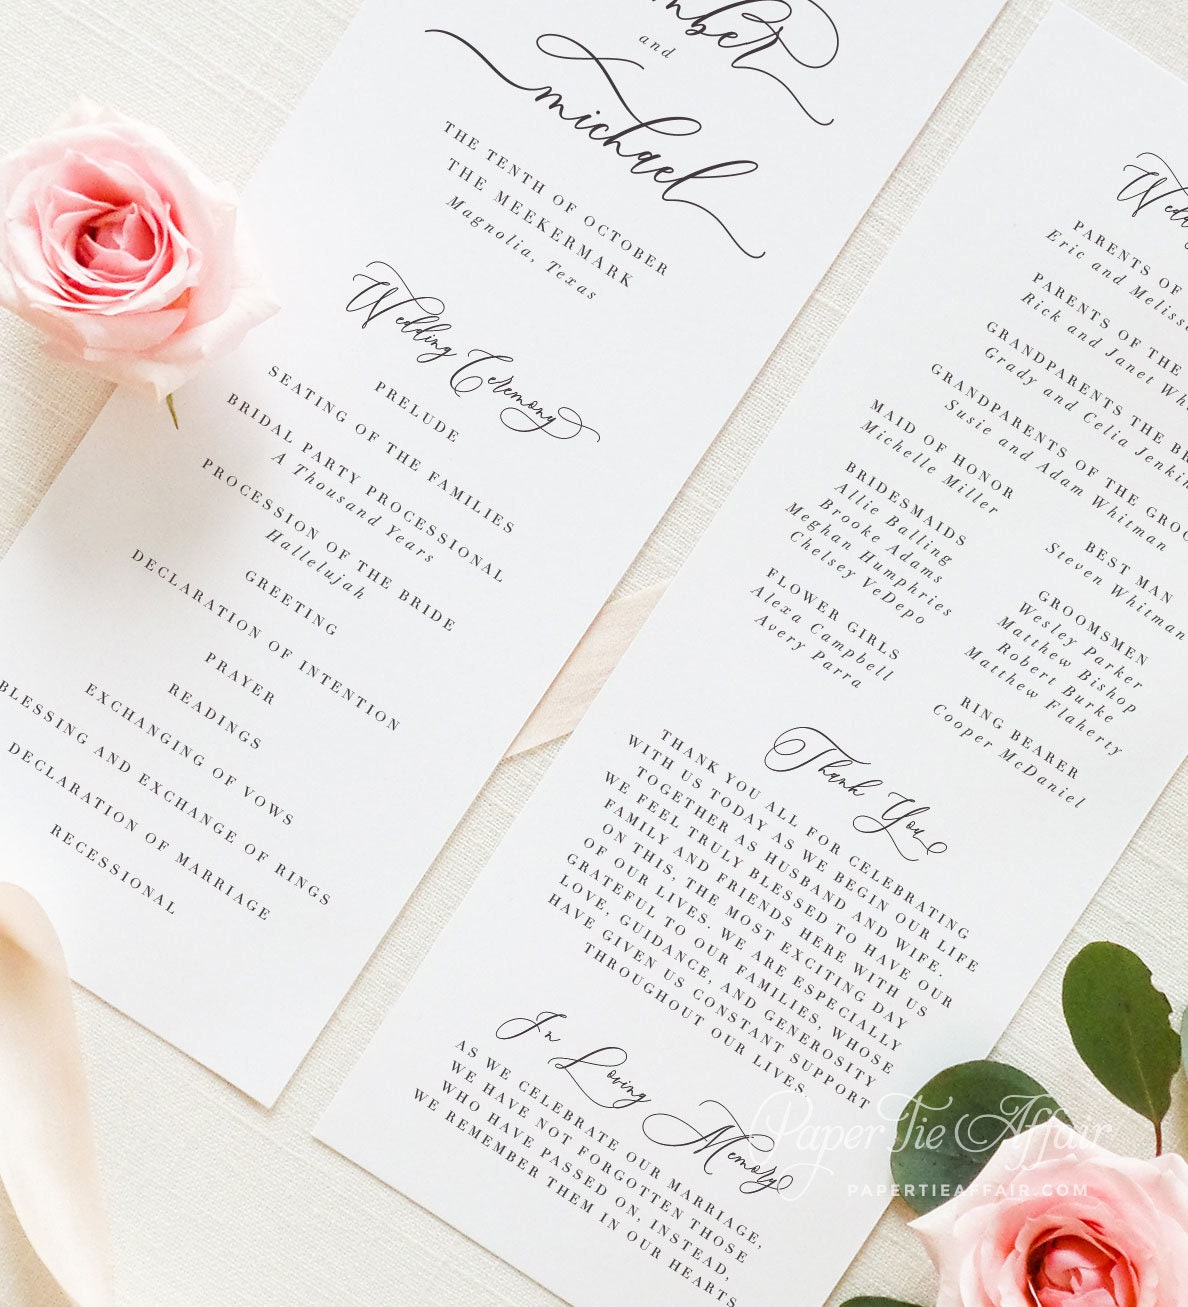 and
michael
THE TENTH OF OCTOBER
THE MEEKERMARK
Magnolia, Texas
Wedding Ceremony
PRELUDE
SEATING OF THE FAMILIES
BRIDAL PARTY PROCESSIONAL
A Thousand Years
PROCESSION OF THE BRIDE
Hallelujah
GREETING
DECLARATION OF INTENTION
PRAYER
READINGS
EXCHANGING OF VOWS
BLESSING AND EXCHANGE OF RINGS
DECLARATION OF MARRIAGE
RECESSIONAL
PARENTS OF
Eric and Melissa
PARENTS OF THE
Rick and Janet
GRANDPARENTS THE
Grady and Celia
GRANDPARENTS OF THE
Susie and Adam Whitman
MAID OF HONOR
Michelle Miller
BRIDESMAIDS
Allie Balling
Brooke Adams
Meghan Humphries
Chelsey VeDepo
FLOWER GIRLS
Alexa Campbell
Avery Parra
BEST MAN
Steven Whitman
GROOMSMEN
Wesley Parker
Matthew Bishop
Robert Burke
Matthew Flaherty
RING BEARER
Cooper McDaniel
Thank You
THANK YOU ALL FOR CELEBRATING
WITH US TODAY AS WE BEGIN OUR LIFE
TOGETHER AS HUSBAND AND WIFE.
WE FEEL TRULY BLESSED TO HAVE OUR
FAMILY AND FRIENDS HERE WITH US
ON THIS, THE MOST EXCITING DAY
OF OUR LIVES. WE ARE ESPECIALLY
GRATEFUL TO OUR FAMILIES, WHOSE
LOVE, GUIDANCE, AND GENEROSITY
HAVE GIVEN US CONSTANT SUPPORT
THROUGHOUT OUR LIVES.
In Loving Memory
AS WE CELEBRATE OUR MARRIAGE,
WE HAVE NOT FORGOTTEN THOSE
WHO HAVE PASSED ON, INSTEAD,
WE REMEMBER THEM IN OUR HEARTS
Paper Tie Affair
PAPERTIEAFFAIR.COM